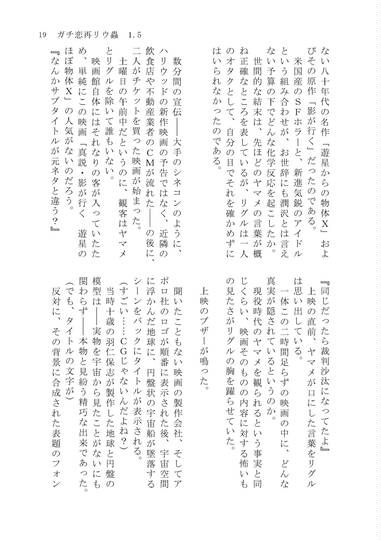 19　ガチ恋再リウ蟲　1.5
ない八十年代の名作「遊星からの物体X」およ
びその原作「影が行く」だったのである。
　米国産のSFホラーと、新進気鋭のアイドル
という組み合わせが、お世辞にも潤沢とは言え
ない予算の下でどんな化学反応を起こしたか。
　世間的な結末は、先ほどのヤマメの言葉が概
ね正確なところを表しているが、リグルは一人
のオタクとして、自分の目でそれを確かめずに
はいられなかったのである。
　数分間の宣伝――大手のシネコンのように、
ハリウッドの新作映画の予告ではなく、近隣の
飲食店や不動産業者のCMが流れた――の後に、
二人がチケットを買った映画が始まった。
　土曜日の午前中だというのに、観客はヤマメ
とリグルを除いて誰もいない。
　映画館自体にはそれなりの客が入っていたた
め、単純にこの映画「真説・影が行く　遊星の
ほぼ物体X」の人気がないのだろう。
『なんかサブタイトルが元ネタと違う？』
『同じだったら裁判沙汰になってたよ』
　上映の直前、ヤマメが口にした言葉をリグル
は思い出している。
　一体この二時間足らずの映画の中に、どんな
真実が隠されているというのか。
　現役時代のヤマメを観られるという事実と同
じくらい、映画そのものの内容に対する怖いも
の見たさがリグルの胸を躍らせていた。
　上映のブザーが鳴った。
　聞いたこともない映画の製作会社、そしてア
ポロ社のロゴが順番に表示された後、宇宙空間
に浮かんだ地球に、円盤状の宇宙船が墜落する
シーンをバックにタイトルが表示される。
（すごい……CGじゃないんだよね？）
　当時十歳の羽仁保志が製作した地球と円盤の
模型は――実物を宇宙から見たことがないにも
関わらず――本物と見紛う精巧な出来であった。
（でも、タイトルの文字が）
　反対に、その背景に合成された表題のフォン